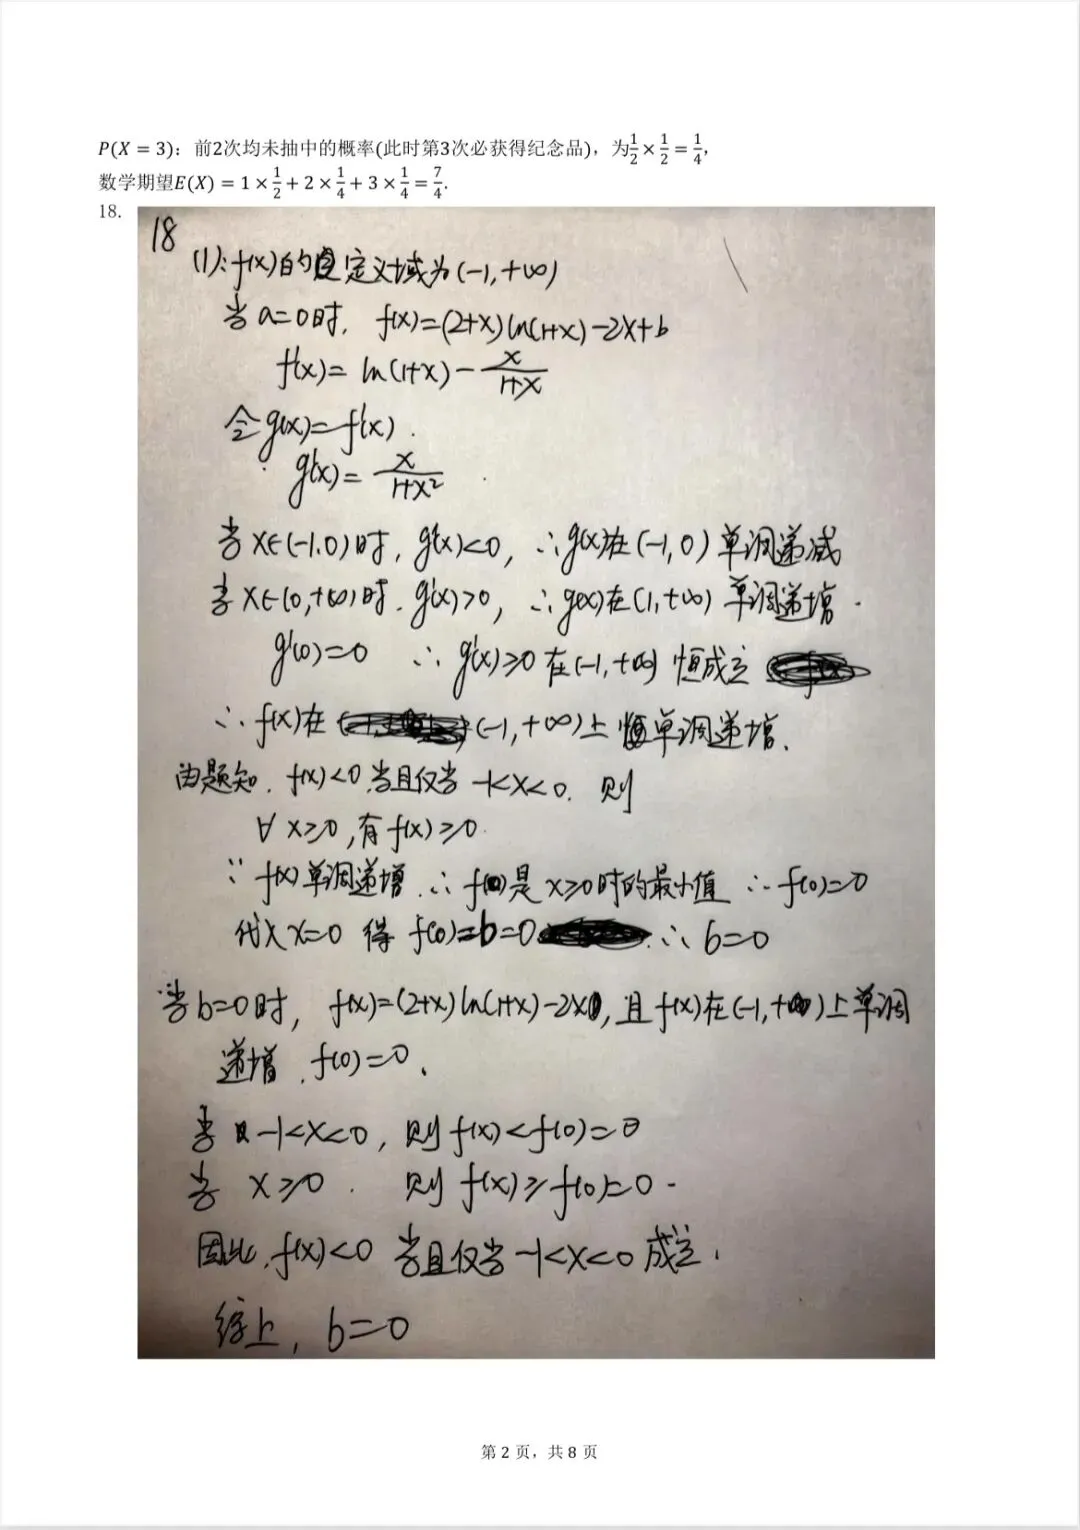 P(X = 3)：前2次均未抽中的概率(此时第3次必获得纪念品)，为1/2 × 1/2 = 1/4，
数学期望E(X) = 1 × 1/2 + 2 × 1/4 + 3 × 1/4 = 7/4.
18.
18
(1): f(x)的定义域为(-1,+∞)
当a=0时, f(x)=(2+x)ln(1+x)-2x+b
f'(x)= ln(1+x) - x/(1+x)
令g(x)=f'(x).
g'(x)= x/(1+x²)
当x∈(-1,0)时, g'(x)<0, ∴g(x)在(-1,0)单调递减
当x∈(0,+∞)时. g'(x)>0, ∴g(x)在(1,+∞)单调递增.
g'(0)=0 ∴ g'(x)≥0在(-1,+∞)恒成立
∴ f(x)在(-1,+∞)上恒单调递增.
由题知, f(x)<0 当且仅当 -1<x<0. 则
∀ x≥0, 有f(x)≥0.
∵ f(x)单调递增 ∴ f(0)是x≥0时的最小值 ∴ f(0)=0
代入x=0 得 f(0)=b=0 ∴ b=0
当b=0时, f(x)=(2+x)ln(1+x)-2x, 且f(x)在(-1,+∞)上单调
递增, f(0)=0.
当 -1<x<0, 则f(x)<f(0)=0
当 x≥0. 则 f(x)≥f(0)=0.
因此, f(x)<0 当且仅当 -1<x<0 成立.
综上, b=0
第 2 页，共 8 页